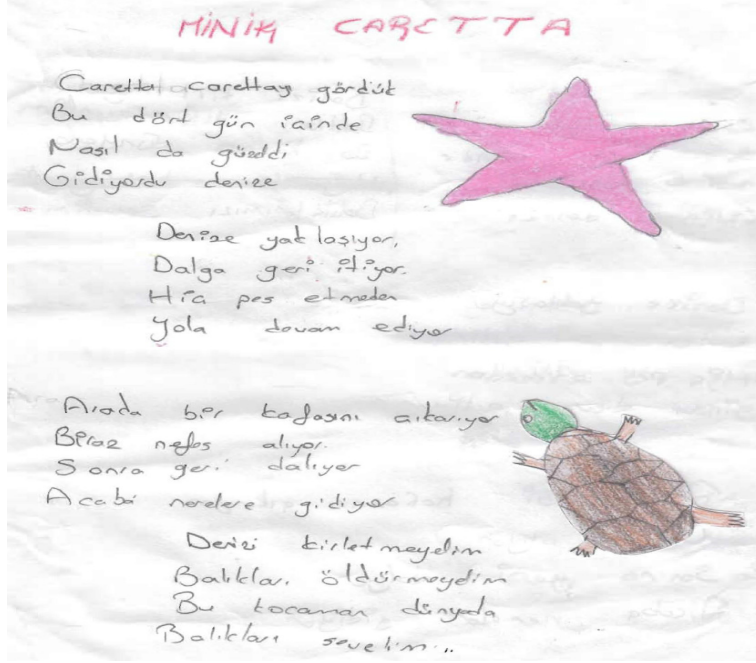 MİNİK CARETTA
Caretta carettayı gördük
Bu dört gün içinde
Nasıl da güzeldi
Gidiyordu denize
Denize yaklaşıyor,
Dalga geri itiyor.
Hiç pes etmeden
Yola devam ediyor
Arada bir kafasını çıkarıyor
Biraz nefes alıyor.
Sonra geri dalıyor
Acaba nerelere gidiyor
Denizi kirletmeyelim
Balıkları öldürmeyelim
Bu kocaman dünyada
Balıkları sevelim...